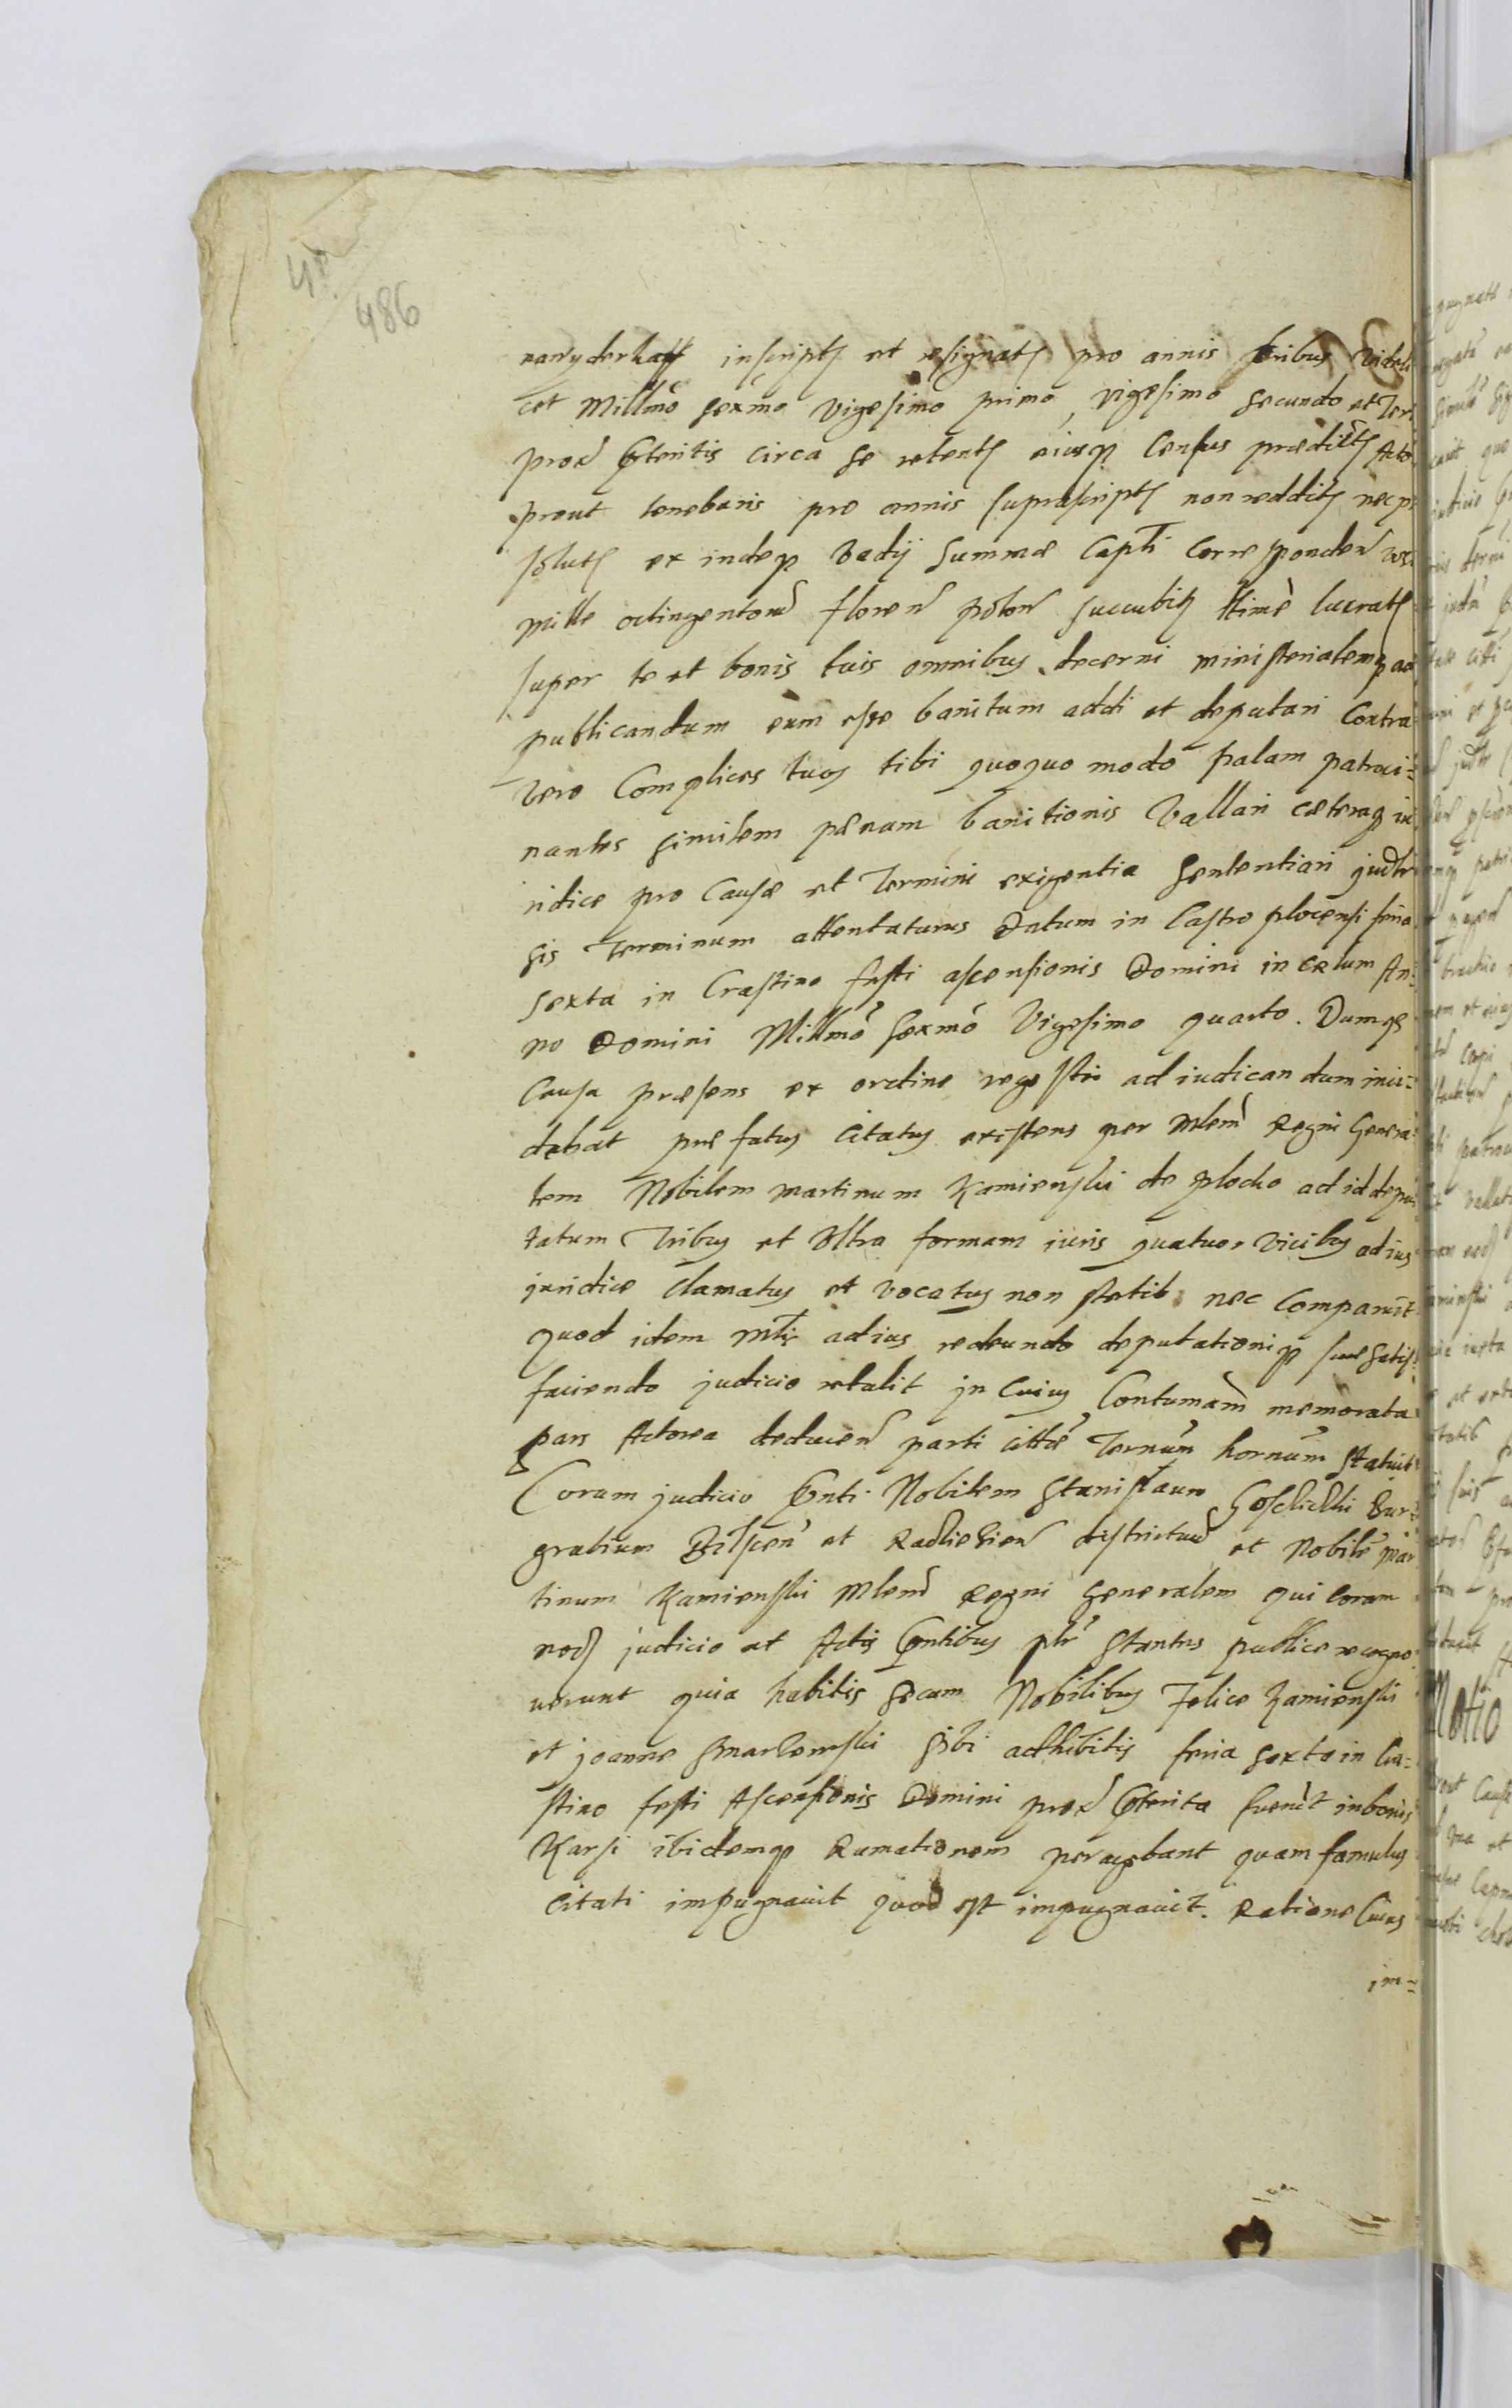 486
inscripts et resignats pro annis tribus videli
cet Millmo sexmo vigesimo primo, vigesimo secundo et Ter
prox Pteritis circa se retents eiusq Census praedicts Acto
prout tenebaris pro annis suprascripts non reddits nec p
soluts ex indeq vadij summae Captli Corresponden
mille octingentoru floren polon succubits ltime lucrats
super te et bonis tuis omnibus decerni ministerialemq ad
publicandum eum esse banitum addi et deputari Contra
vero Complices tuos tibi quoquo modo palam patroci=
nantes similem paenam banitionis Vallari caeteraq iu
ridice pro Causae et Termini exigentia sententiari judtr
sis Terminum attentaturus Datum in Castro plocensi feria
sexta in Crastino festi ascensionis Domini in caelum An=
no Domini Millmo sexmo Vigesimo quarto. Dumqe
Causa praesens ex ordine regestri ad iudicandum inci=
debat praefatus Citatus existens per Mlem Regni Genera=
lem Nobilem Martinum Kamienski de Plocko ad id depu=
tatum Tribus et Ultra formam iuris quatuor vicibus ad ius
juridice Clamatus et vocatus non stetit nec Comparuit
quod idem Mlis ad ius redeundo deputationiq suae satis=
faciendo judicio retulit jn Cuius Contumam memorata
pars Actorea deducen parti cittae Ternum hornum statuit
Coram judicio Pnti Nobilem Stanislaum Bur=
grabium et districtuu et Nobile Mar
tinum Kamienski Mlem Regni Generalem qui coram
eod judicio et Actis Pntibus pltr stantes publice recogno
uerunt quia habitis secum Nobilibus Felice Kamienski
et joanne sibi adhibitis feria sexta in Cra=
stino festi Ascensionis Domini prox Pterita fuerut in bonis
Karsi ibidemqe Rumationem peragebant quam famulus
Citati impugnauit quod est impugnauit. Ratione Cuius
im=